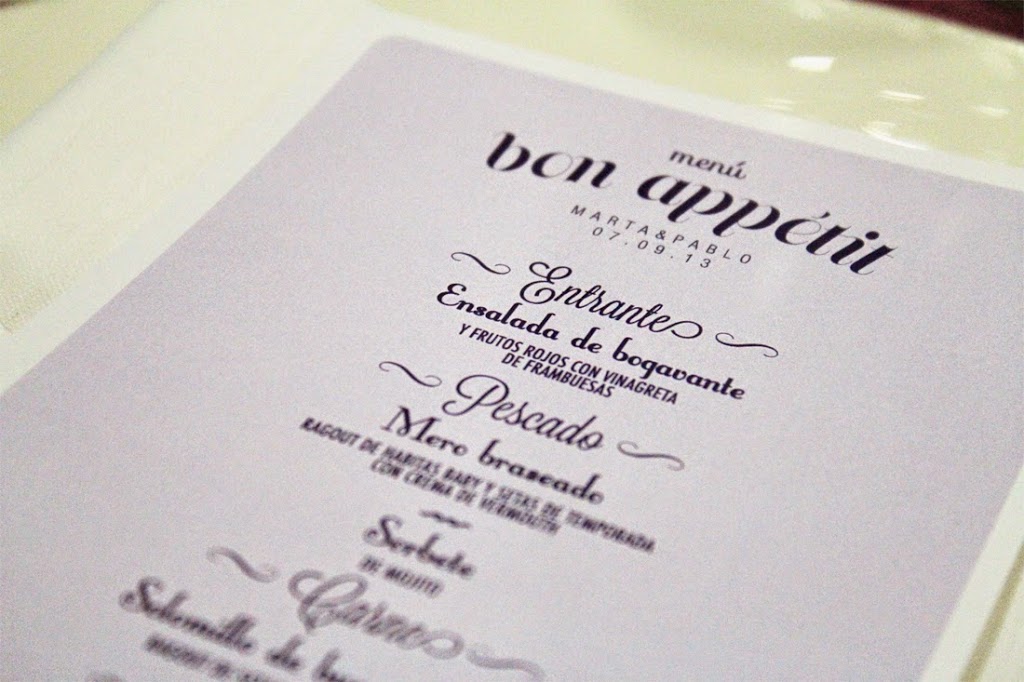 menú
bon appétit
MARTA&PABLO
07.09.13
Entrante
Ensalada de bogavante
Y FRUTOS ROJOS CON VINAGRETA
DE FRAMBUESAS
Pescado
Mero braseado
RAGOUT DE HABITAS BABY Y SETAS DE TEMPORADA
CON CREMA DE VERMOUTH
Sorbete
DE MOJITO
Carne
Solomillo de
RAGOUT DE